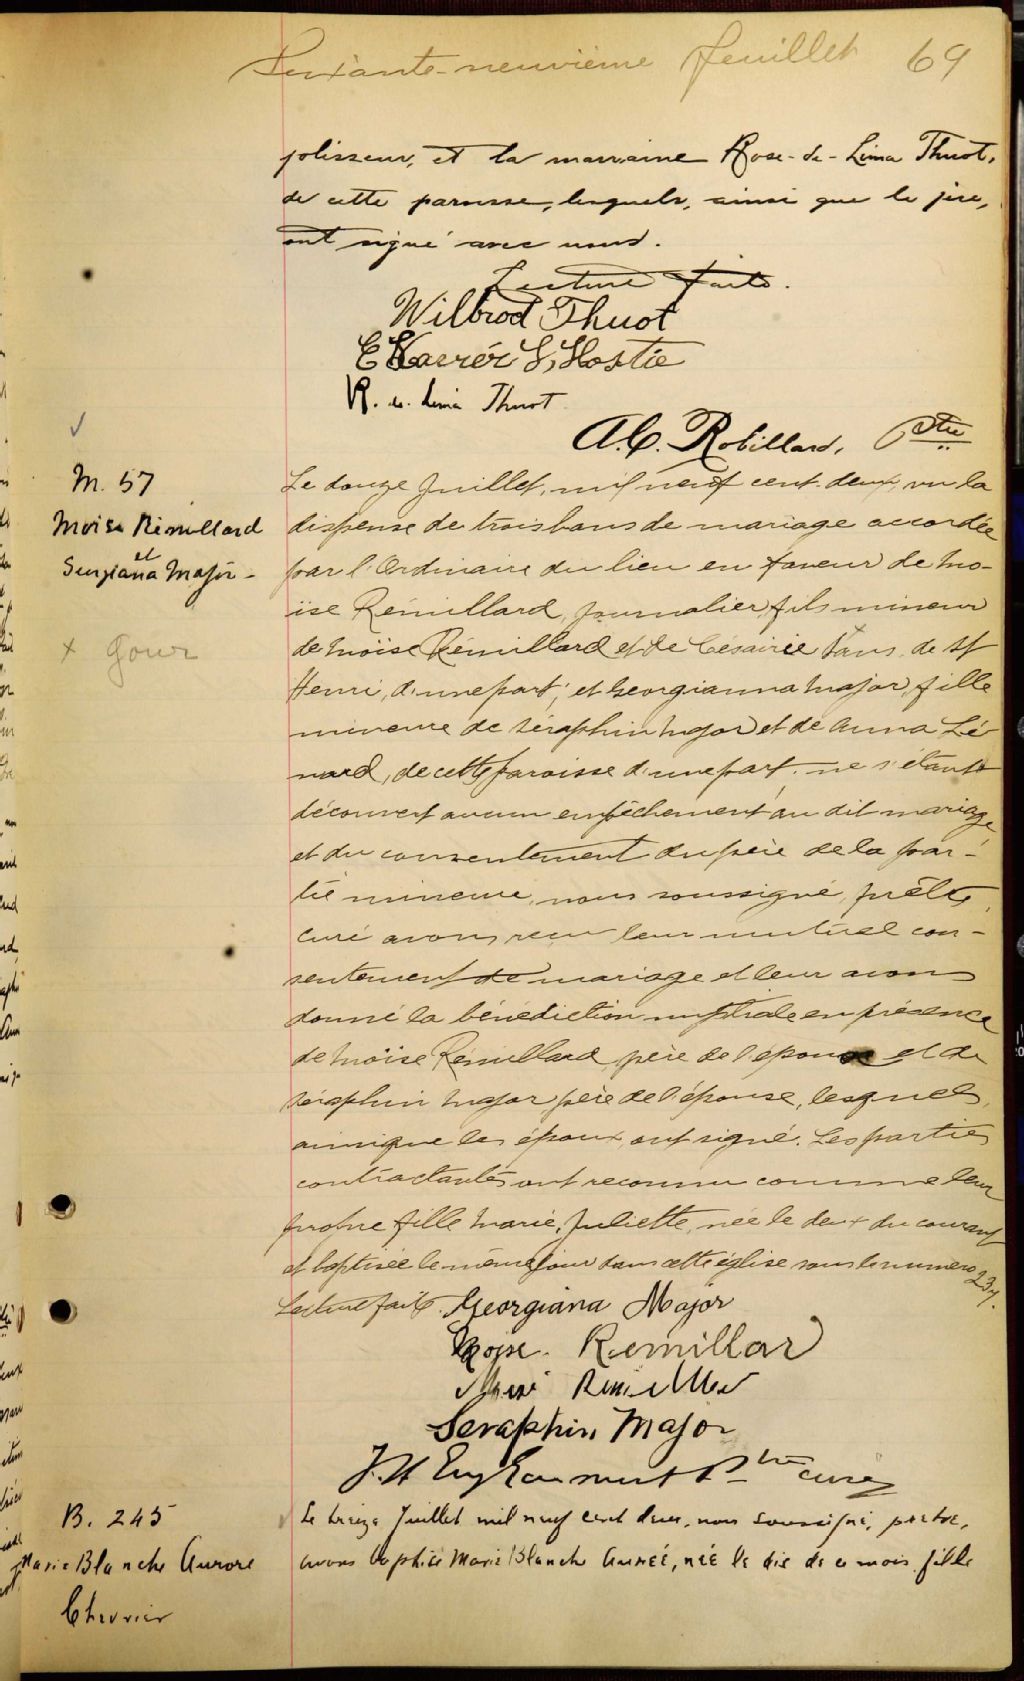 Soixante-neuvième feuillet 69
polisseur, et la marraine Rose-de-Lima Thuot,
de cette paroisse, lesquels, ainsi que le père,
ont signé avec nous.
Lecture faite.
Wilbrod Thuot
E Xavier L'Hostie
R. de Lima Thuot
A.C. Robillard, Ptre
M. 57
Moise Rémillard
et
Georgiana Major
Le douze Juillet, mil neuf cent deux, vu la
dispense de trois bans de mariage accordée
par l'Ordinaire du lieu en faveur de Mo-
ïse Rémillard, journalier, fils mineur
de Moïse Rémillard et de Césairie de St
Henri, d'une part; et Georgianna Major, fille
mineure de Séraphin Major et de Anna Lé-
nard, de cette paroisse d'une part. ne s'étant
découvert aucun empêchement au dit mariage
et du consentement du père de la par-
tie mineure, nous soussigné, prêtre,
curé avons reçu leur mutuel con-
sentement de mariage et leur avons
donné la bénédiction nuptiale en présence
de Moïse Rémillard père de l'époux et de
Séraphin Major père de l'épouse, lesquels,
ainsi que les époux, ont signé. Les parties
contractantes ont reconnu comme leur
propre fille Marie, Juliette, née le deux du courant
et baptisée le même jour dans cette église sous le numéro 231.
Lecture faite. Georgiana Major
Moise. Remillar
Remillar
Seraphin Major
Ptre curé
B. 245
Marie Blanche Aurore
Chevrier
Le treize Juillet mil neuf cent deux, nous soussigné, prêtre,
avons baptisé Marie Blanche, née le dix de ce mois, fille